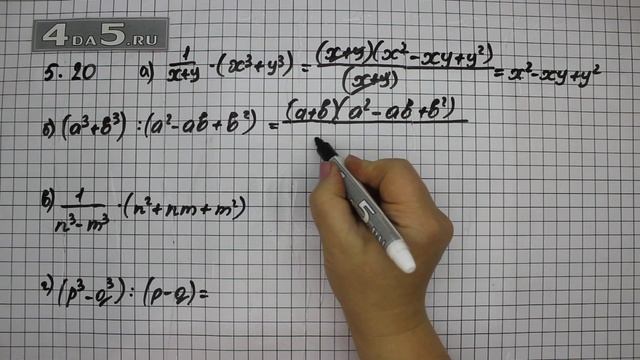 4DA5.RU
5.20 а) 1/(x+y) · (x³+y³) = (x+y)(x²-xy+y²)/(x+y) = x²-xy+y²
б) (a³+b³) : (a²-ab+b²) = (a+b)(a²-ab+b²)
в) 1/(n³-m³) · (n²+nm+m²)
г) (p³-q³) : (p-q) =
5